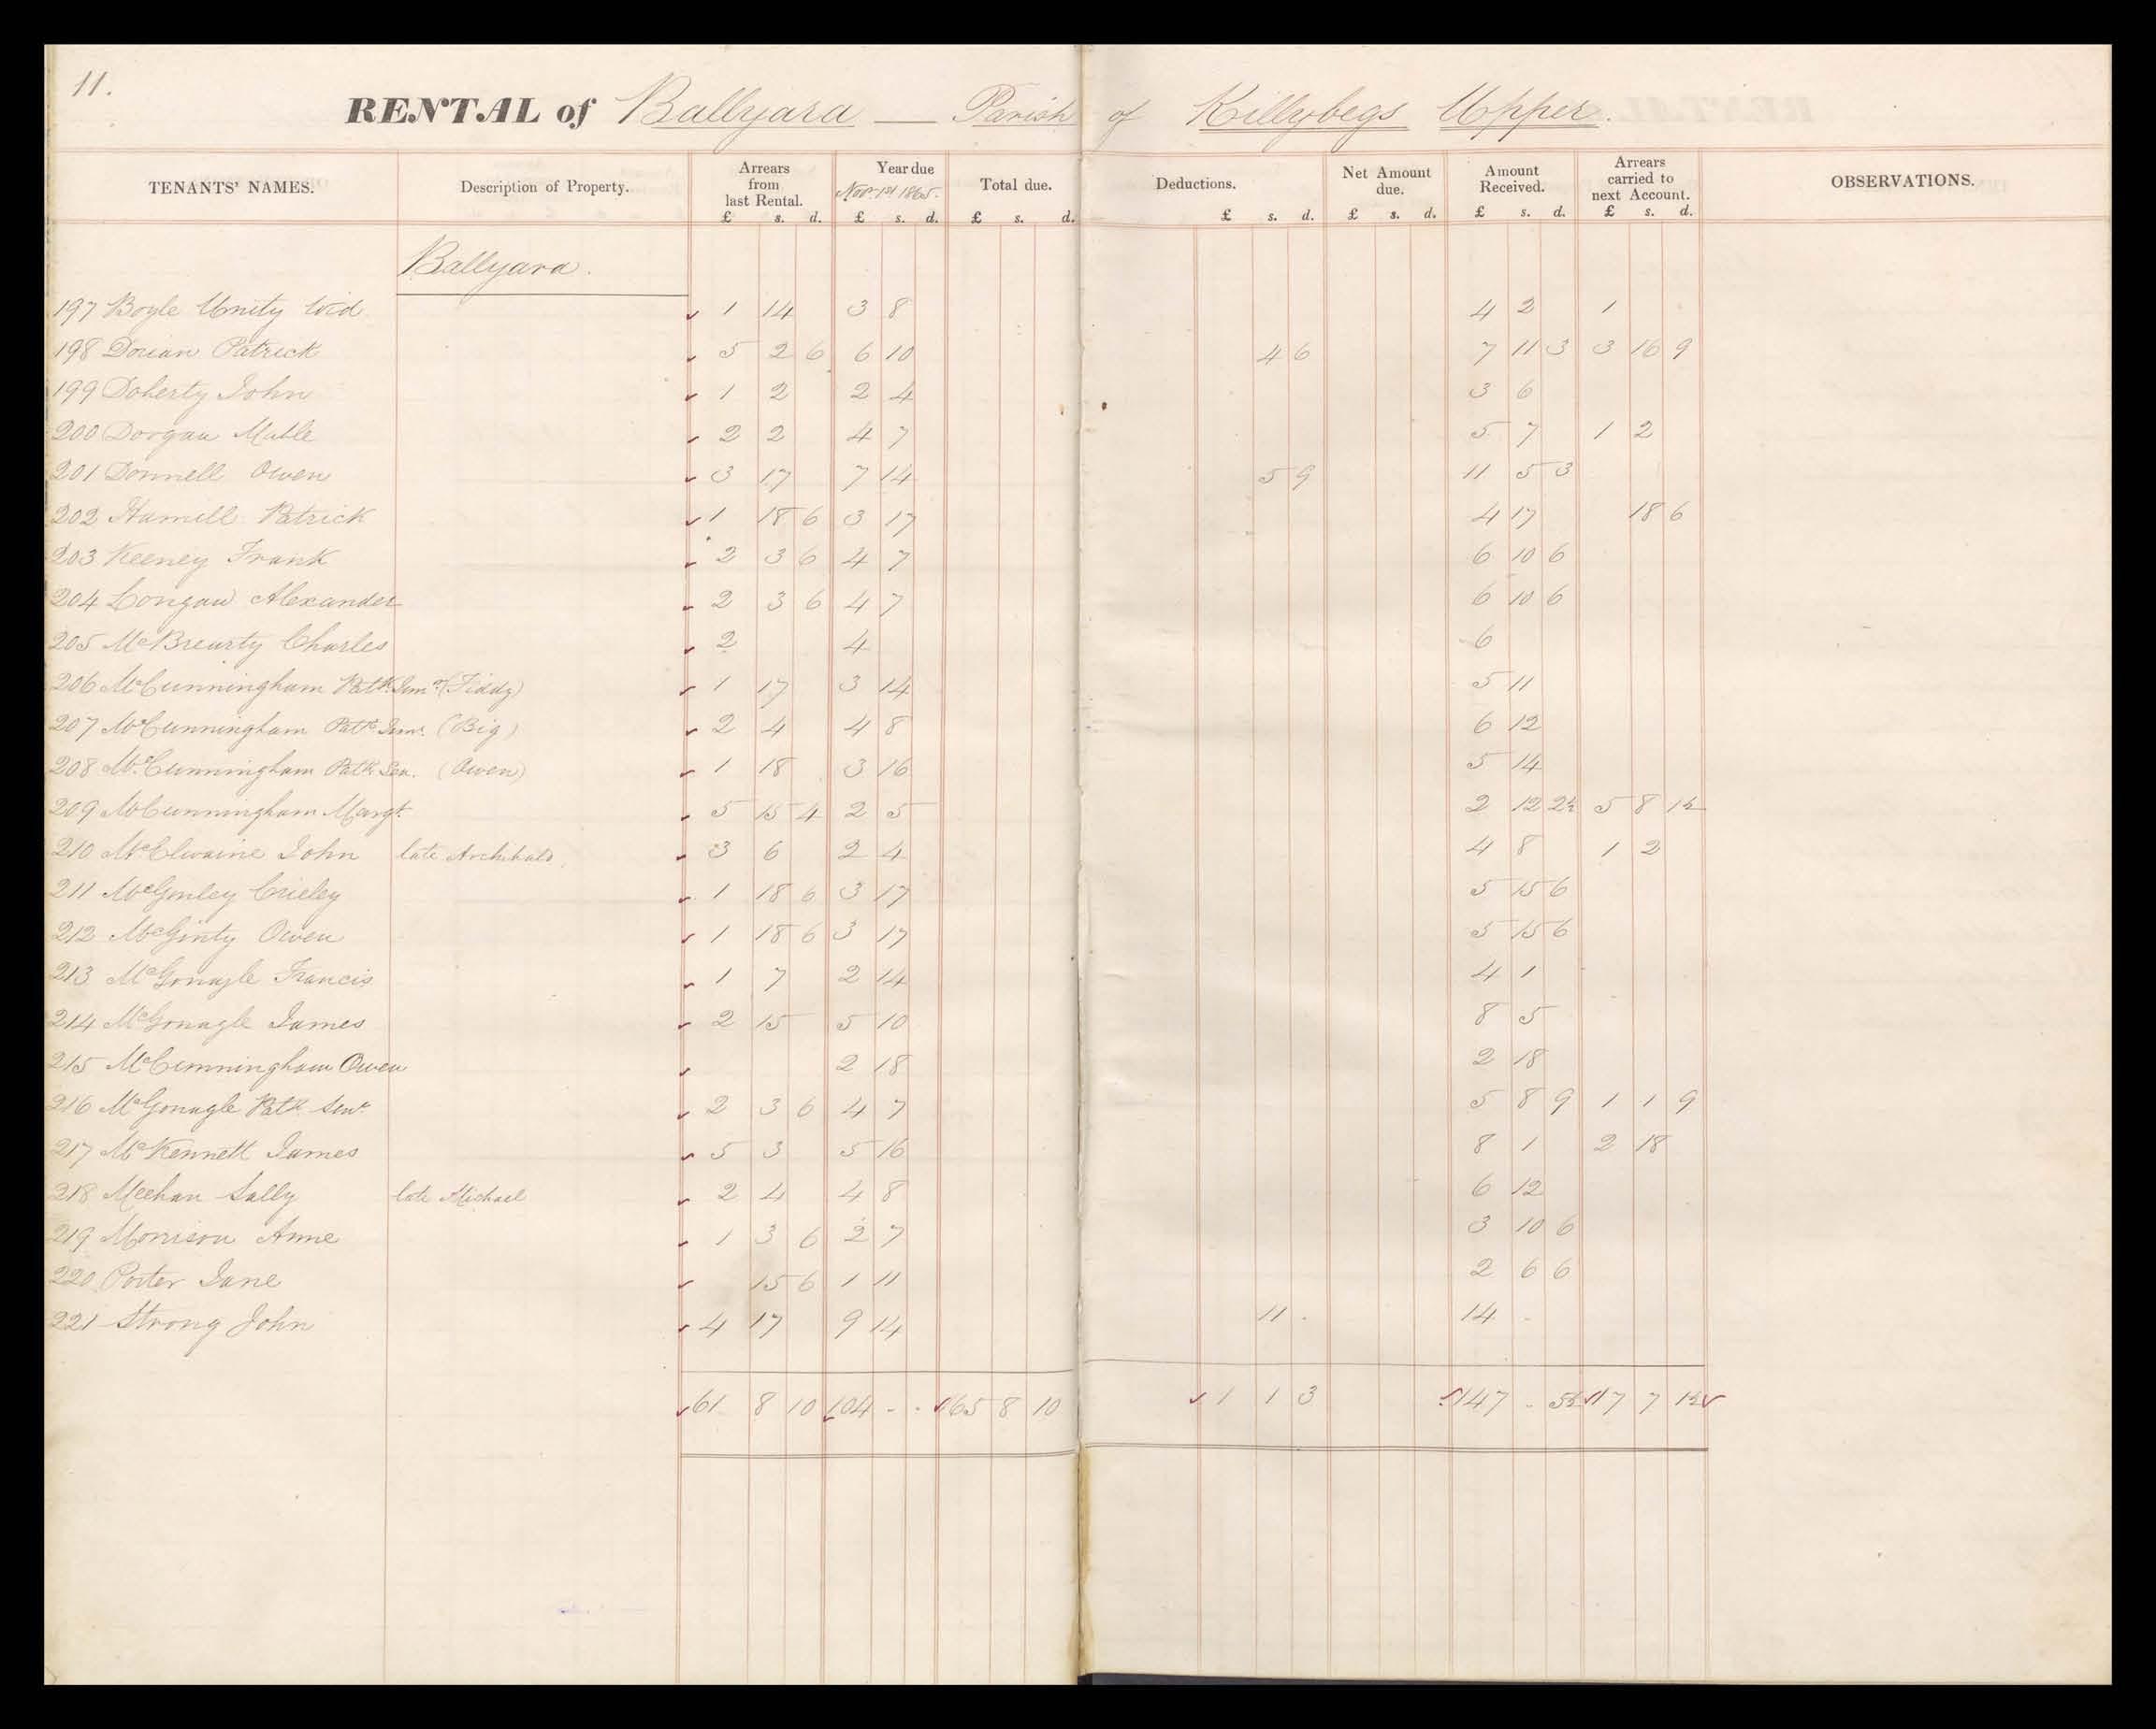 11.
RENTAL of Ballyara — Parish of Killybegs Upper.
TENANTS' NAMES. Description of Property. Arrears from last Rental. Year due Nov. 1st 1865. Total due. Deductions. Net Amount due. Amount Received. Arrears carried to next Account. OBSERVATIONS.
£ s. d. £ s. d. £ s. d. £ s. d. £ s. d. £ s. d. £ s. d.
Ballyara.
197 Boyle Unity Wid 1 14 3 8 4 2 1
198 Dorian Patrick 5 2 6 6 10 4 6 7 11 3 3 16 9
199 Doherty John 1 2 2 4 3 6
200 Dorgan Matle 2 2 4 7 5 7 1 2
201 Donnell Owen 3 17 7 14 5 9 11 5 3
202 Hamill Patrick 1 18 6 3 17 4 17 18 6
203 Keeney Frank 2 3 6 4 7 6 10 6
204 Longan Alexander 2 3 6 4 7 6 10 6
205 McBrearty Charles 2 4 6
206 McCunningham Patk. Junr. (Fiddy) 1 17 3 14 5 11
207 McCunningham Patk. Junr. (Big) 2 4 4 8 6 12
208 McCunningham Patk Sen. (Owen) 1 18 3 16 5 14
209 McCunningham Margt. 5 15 4 2 5 2 12 2½ 5 8 1½
210 McElwaine John late Archibald. 3 6 2 4 4 8 1 2
211 McGinley Crieley 1 18 6 3 17 5 15 6
212 McGinty Owen 1 18 6 3 17 5 15 6
213 McGonagle Francis 1 7 2 14 4 1
214 McGonagle James 2 15 5 10 8 5
215 McCunningham Owen 2 18 2 18
216 McGonagle Patk Senr. 2 3 6 4 7 5 8 9 1 1 9
217 McKennett James 5 3 5 16 8 1 2 18
218 Meehan Sally late Michael 2 4 4 8 6 12
219 Morrison Anne 1 3 6 2 7 3 10 6
220 Porter Jane 15 6 1 11 2 6 6
221 Strong John 4 17 9 14 11 . 14 .
61 8 10 104 - - 165 8 10 1 1 3 147 - 5½ 17 7 1½